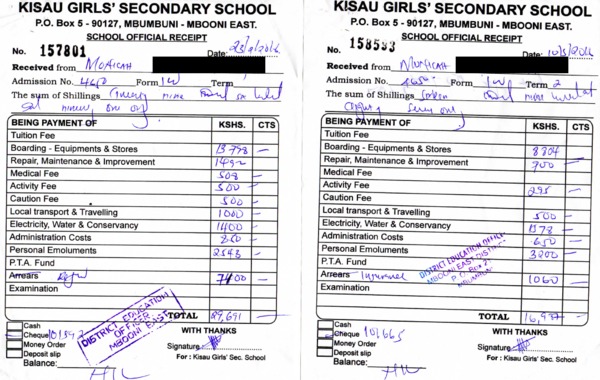 KISAU GIRLS' SECONDARY SCHOOL
P.O. Box 5 - 90127, MBUMBUNI - MBOONI EAST.
SCHOOL OFFICIAL RECEIPT
No. 157801 Date:
Received from
Admission No. 4650 Form 1W Term
The sum of Shillings
BEING PAYMENT OF KSHS. CTS
Tuition Fee
Boarding - Equipments & Stores
Repair, Maintenance & Improvement 1492 –
Medical Fee 508 –
Activity Fee 500 –
Caution Fee 500 –
Local transport & Travelling 1000 –
Electricity, Water & Conservancy 1400 –
Administration Costs 850 –
Personal Emoluments 2543 –
P.T.A. Fund
Arrears 7400 –
Examination
TOTAL 29,691 –
DISTRICT EDUCATION
OFFICER
MBOONI EAST
Cash
Cheque
Money Order
Deposit slip
Balance:
WITH THANKS
Signature
For : Kisau Girls' Sec. School
KISAU GIRLS' SECONDARY SCHOOL
P.O. Box 5 - 90127, MBUMBUNI - MBOONI EAST.
SCHOOL OFFICIAL RECEIPT
No. 158593 Date:
Received from
Admission No. 4650 Form 1W Term 2
The sum of Shillings
BEING PAYMENT OF KSHS. CTS
Tuition Fee
Boarding - Equipments & Stores 8804 –
Repair, Maintenance & Improvement 700 –
Medical Fee
Activity Fee 295 –
Caution Fee
Local transport & Travelling 500 –
Electricity, Water & Conservancy 1378 –
Administration Costs 650 –
Personal Emoluments 3200 –
P.T.A. Fund
Arrears 1060 –
Examination
TOTAL
DISTRICT EDUCATION OFFICER
MBOONI EAST DISTRICT
Cash
Cheque
Money Order
Deposit slip
Balance:
WITH THANKS
Signature
For : Kisau Girls' Sec. School